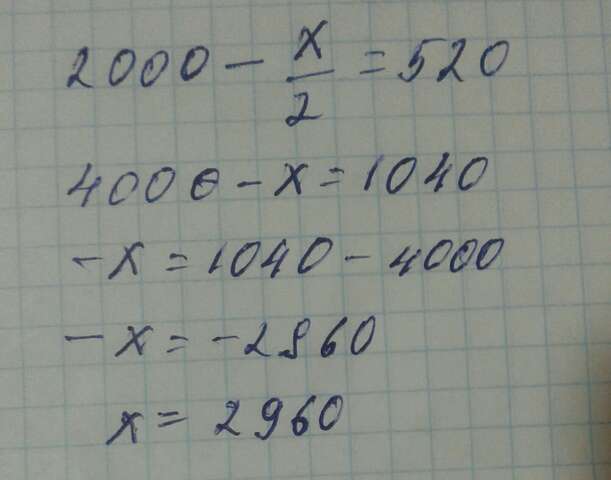 2000 - x/2 = 520
4000 - x = 1040
-x = 1040 - 4000
-x = -2960
x = 2960